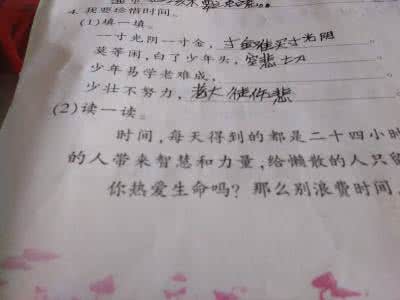 4. 我要珍惜时间。
(1)填一填。
一寸光阴一寸金，寸金难买寸光阴。
莫等闲，白了少年头，空悲切。
少年易学老难成，
少壮不努力，老大徒伤悲。
(2)读一读。
时间，每天得到的都是二十四小时
的人带来智慧和力量，给懒散的人只留
你热爱生命吗？那么别浪费时间，